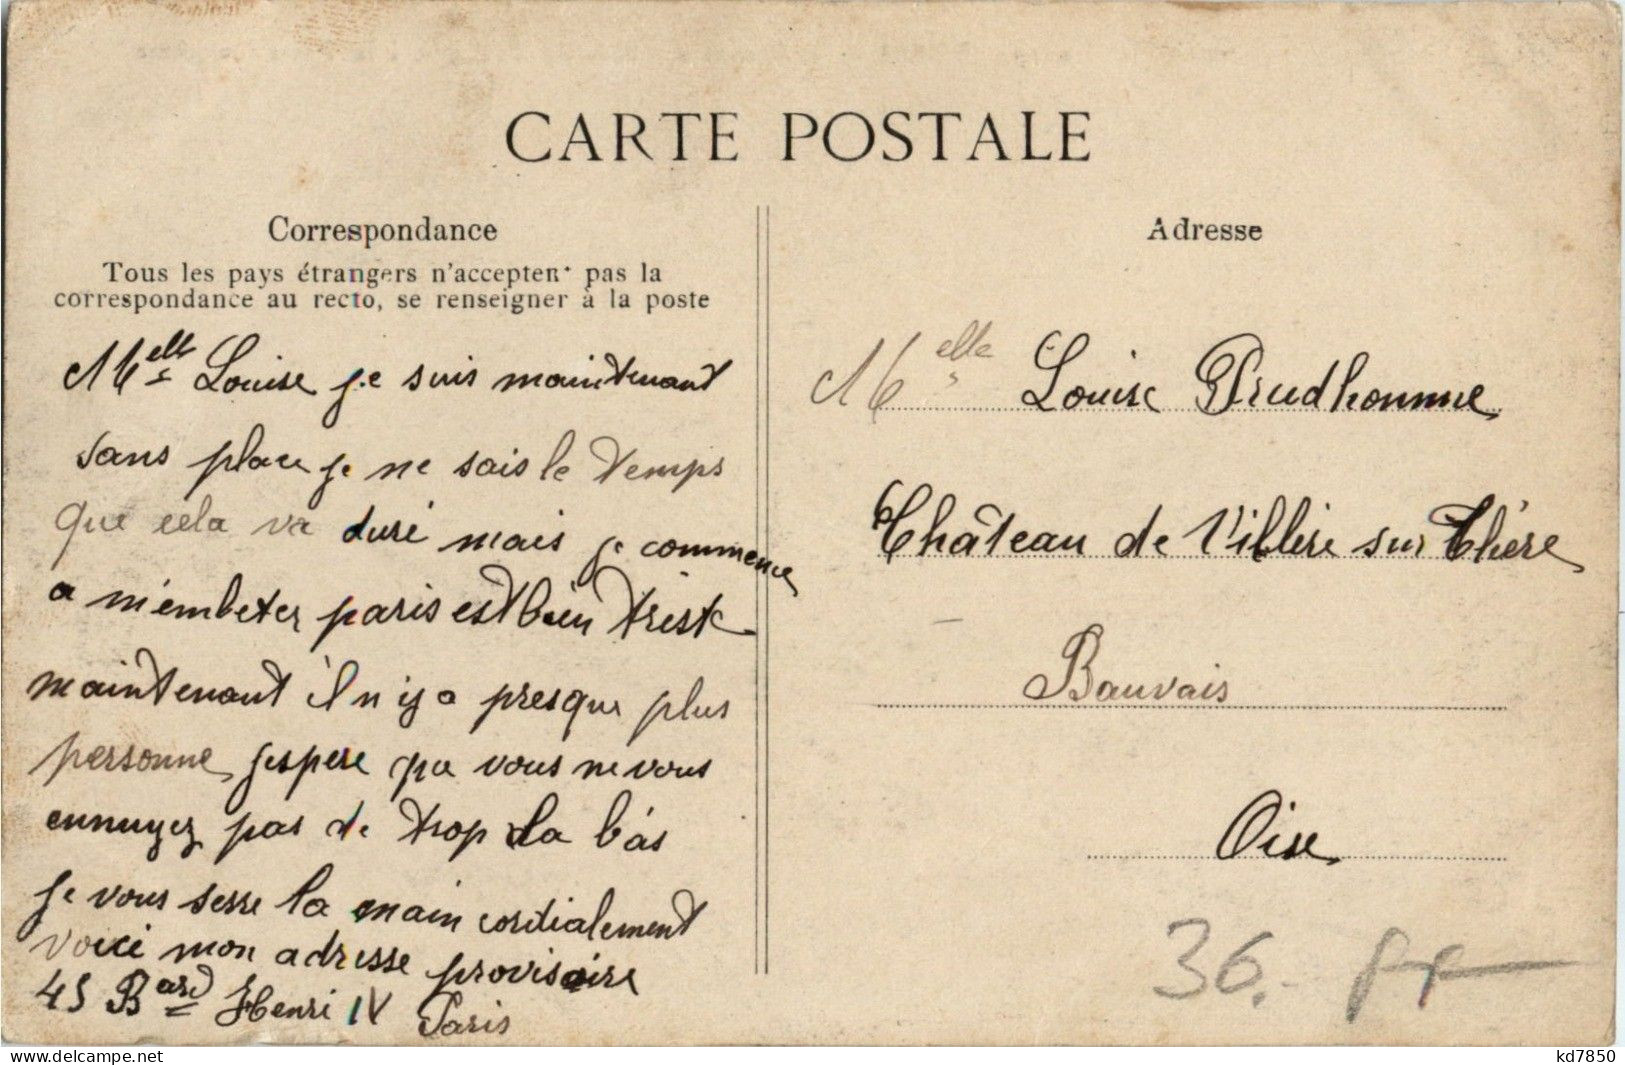 CARTE POSTALE
Correspondance
Tous les pays étrangers n'acceptent pas la
correspondance au recto, se renseigner à la poste
Melle Louise je suis maintenant
sans place je ne sais le temps
que cela va duré mais je commence
a m'embeter paris est bien triste
maintenant il n'iy a presque plus
personne jespere que vous ne vous
ennuyez pas de trop la bàs
je vous serre la main cordialement
voici mon adresse provisoire
45 Bard Henri IV Paris
Adresse
Melle Louise Prudhomme
Château de Villère sur Thère
Bauvais
Oise
36.-
delcampe.net
kd7850